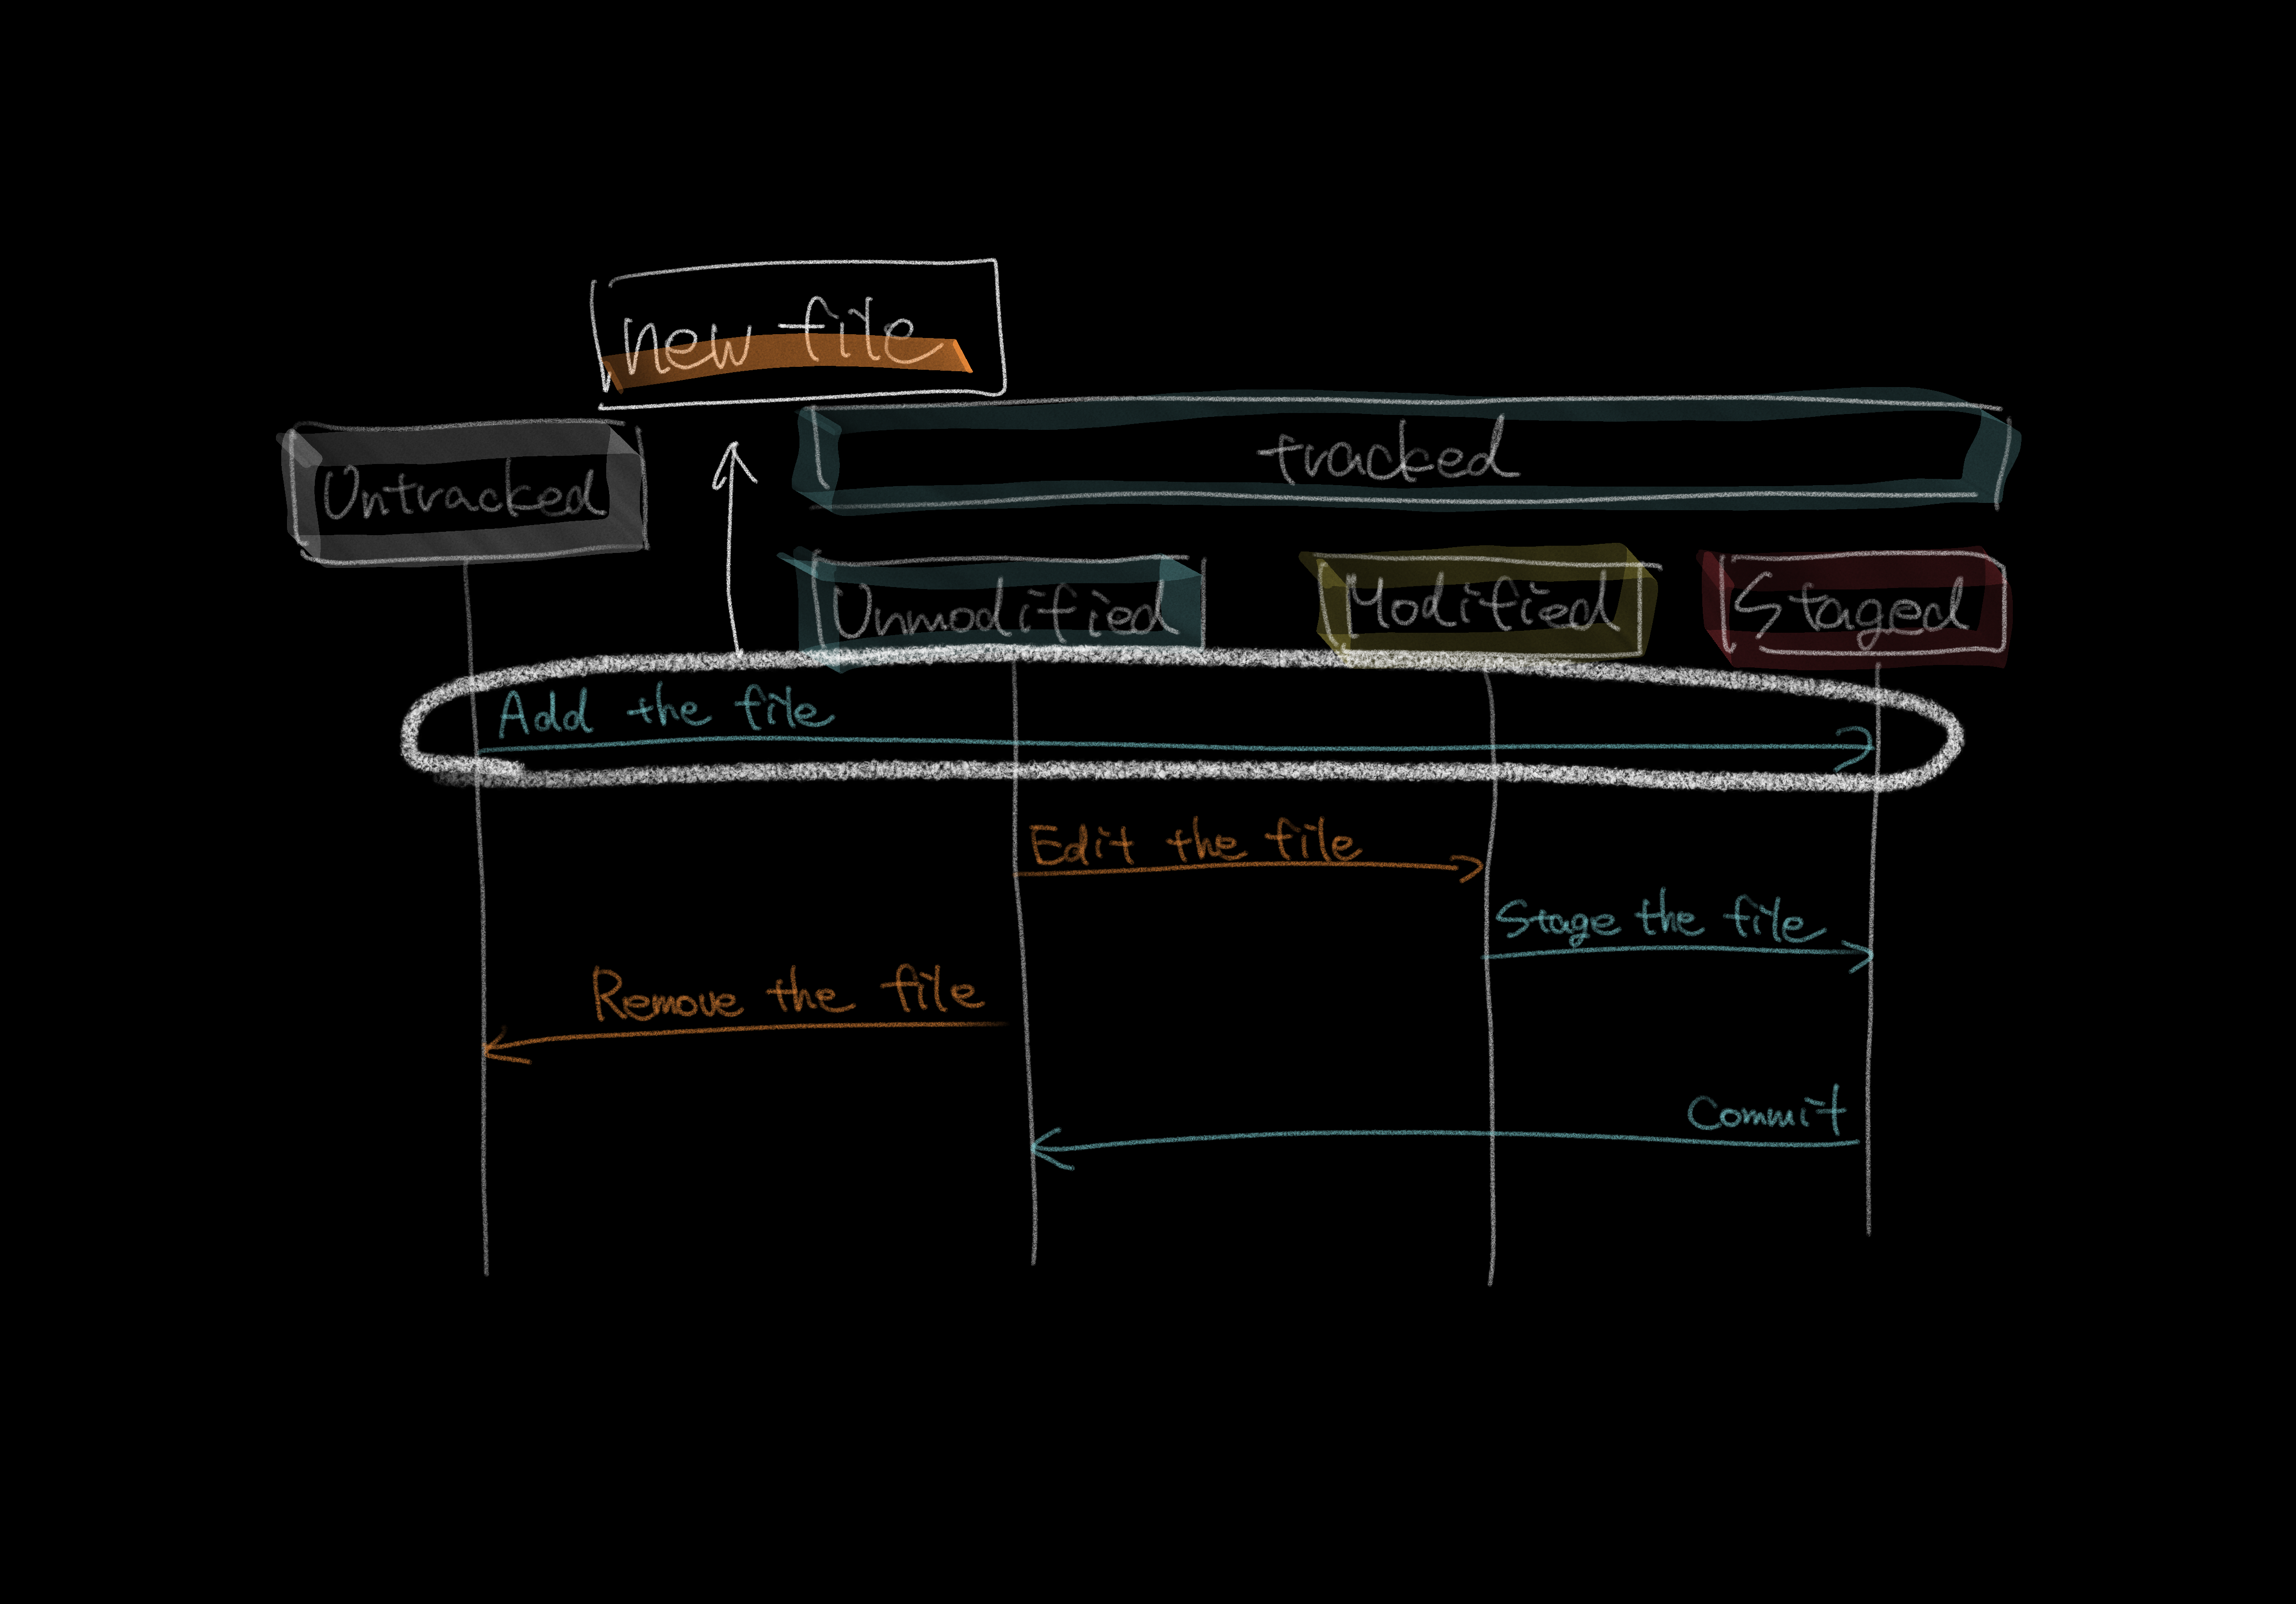 new file
tracked
Untracked
Unmodified
Modified
Staged
Add the file
Edit the file
Stage the file
Remove the file
Commit